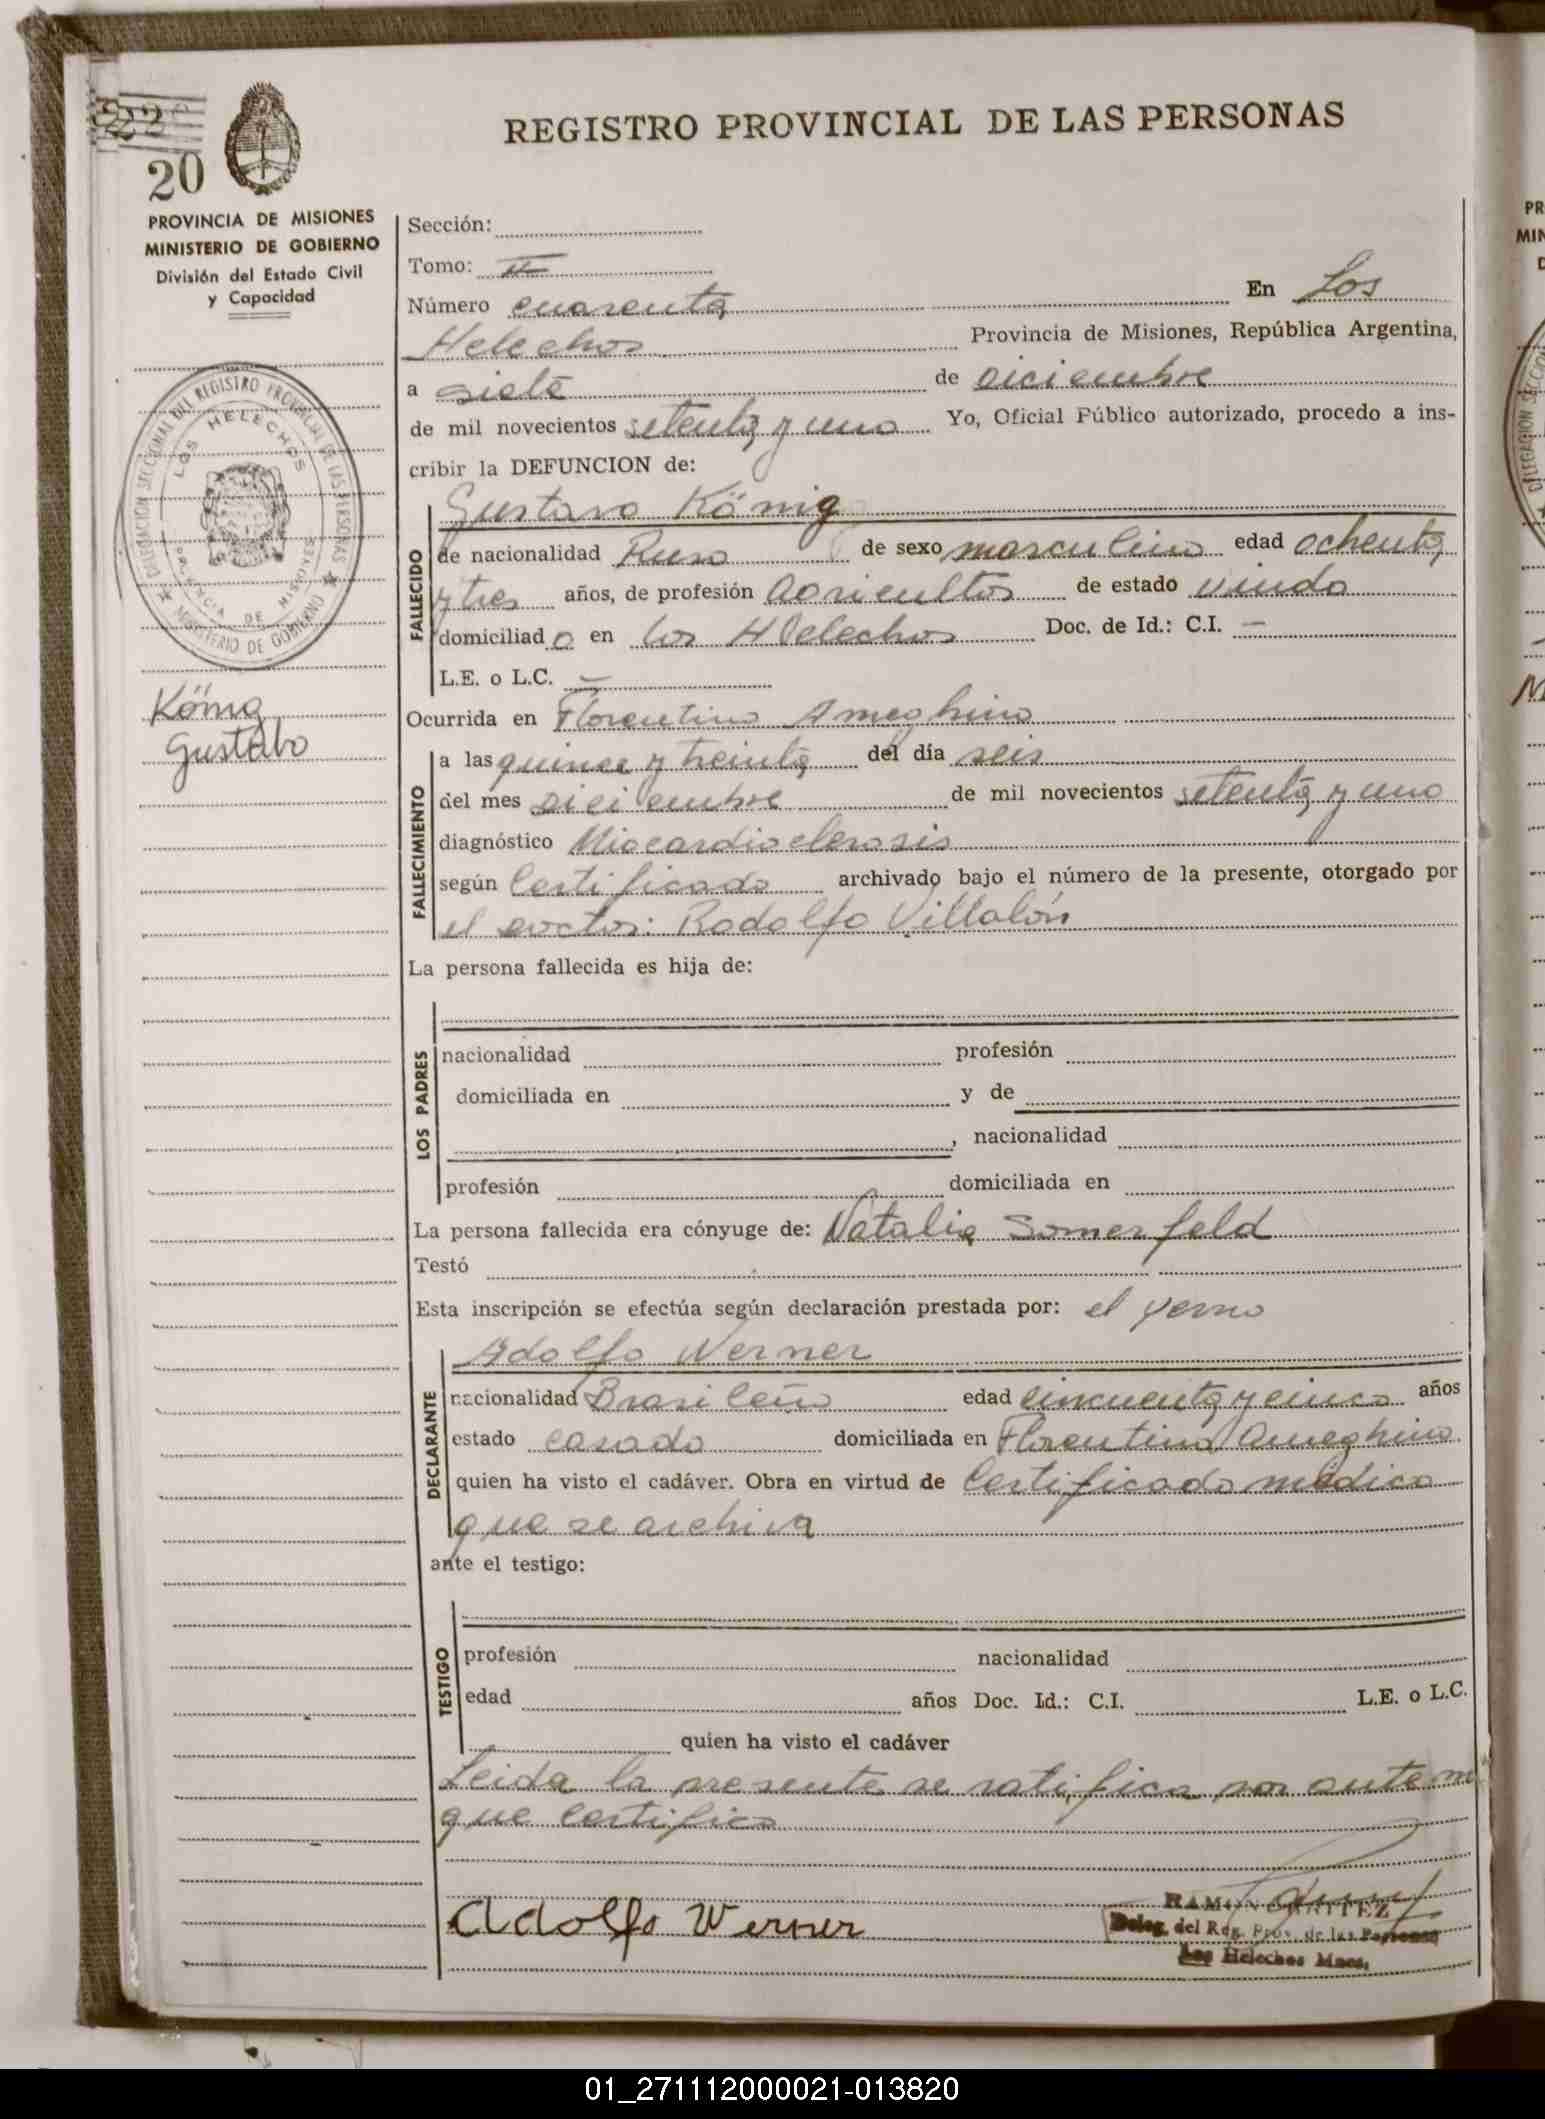 20
REGISTRO PROVINCIAL DE LAS PERSONAS
PROVINCIA DE MISIONES
MINISTERIO DE GOBIERNO
División del Estado Civil
y Capacidad
DELEGACION SECCIONAL DEL REGISTRO PROVINCIAL DE LAS PERSONAS
LOS HELECHOS
PROVINCIA DE MISIONES
MINISTERIO DE GOBIERNO
König
Gustabo
Sección:
Tomo: II
Número cuarenta En Los
Helechos Provincia de Misiones, República Argentina,
a siete de Diciembre
de mil novecientos setenta y uno Yo, Oficial Público autorizado, procedo a ins-
cribir la DEFUNCION de:
FALLECIDO
Gustavo König
de nacionalidad Ruso de sexo masculino edad ochenta
y tres años, de profesión Agricultor de estado viudo
domiciliado en Los Helechos Doc. de Id.: C.I. —
L.E. o L.C. —
Ocurrida en Florentino Ameghino
FALLECIMIENTO
a las quince y treinta del día seis
del mes Diciembre de mil novecientos setenta y uno
diagnóstico Miocardioclerosis
según Certificado archivado bajo el número de la presente, otorgado por
el doctor: Rodolfo Villalón
La persona fallecida es hija de:
LOS PADRES
nacionalidad profesión
domiciliada en y de
, nacionalidad
profesión domiciliada en
La persona fallecida era cónyuge de: Natalia Somerfeld
Testó
Esta inscripción se efectúa según declaración prestada por: el yerno
DECLARANTE
Adolfo Werner
nacionalidad Brasileño edad cincuenta y cinco años
estado casado domiciliada en Florentino Ameghino
quien ha visto el cadáver. Obra en virtud de Certificado médico
que se archiva
ante el testigo:
TESTIGO
profesión nacionalidad
edad años Doc. Id.: C.I. L.E. o L.C.
quien ha visto el cadáver
Leida la presente se ratifica por ante mi
que certifico
Adolfo Werner
RAMON
Deleg. del Reg. Prov. de las Personas
Los Helechos Mnes.
01_271112000021-013820